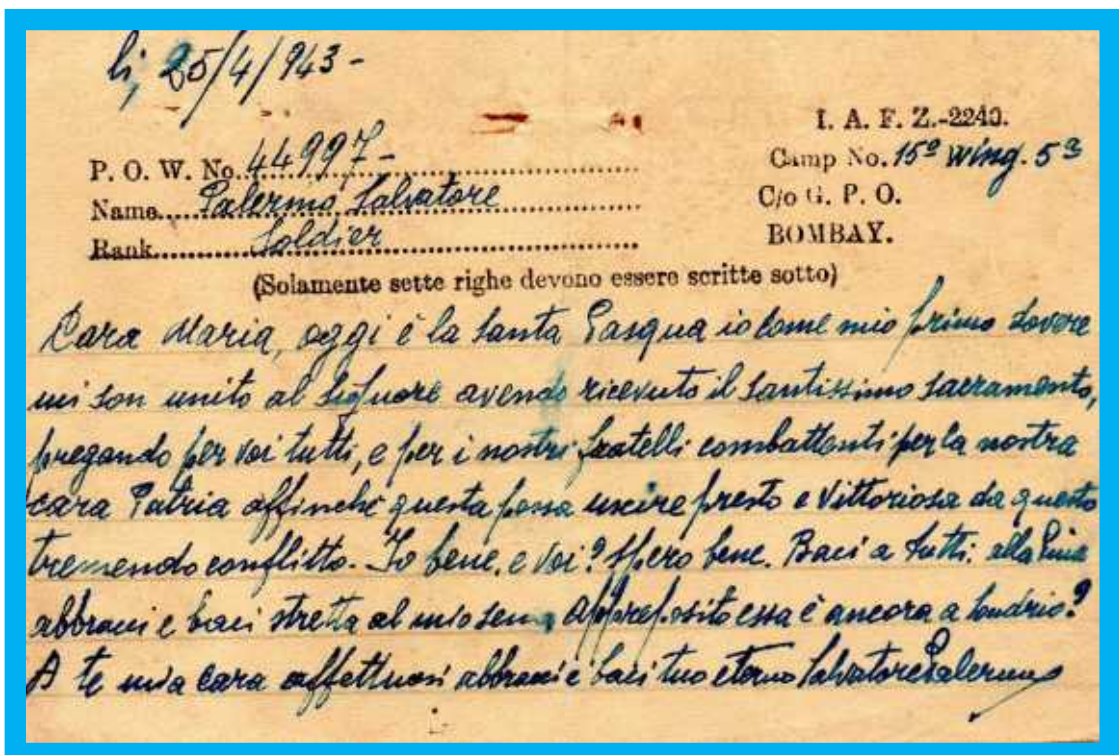 li, 25/4/943-
I. A. F. Z.-2240.
P. O. W. No. 44997-
Camp No. 15º Wing. 5º
Name Palermo Salvatore
C/o G. P. O.
Rank Soldier
BOMBAY.
(Solamente sette righe devono essere scritte sotto)
Cara Maria, oggi è la Santa Pasqua io come mio primo dovere
mi son unito al Signore avendo ricevuto il santissimo sacramento,
pregando per voi tutti, e per i nostri fratelli combattenti per la nostra
cara Patria affinchè questa possa uscire presto e vittoriosa da questo
tremendo conflitto. Io bene, e voi? Spero bene. Baci a tutti. alla
abbracci e baci stretta al mio seno, appreposito essa è ancora a Sondrio?
A te mia cara affettuosi abbracci e baci tuo eterno Salvatore Palermo